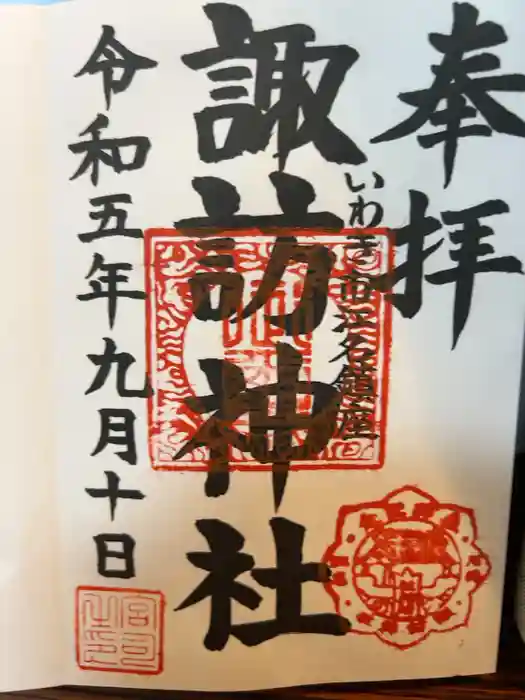 奉拝
いわき市江名鎮座
諏訪神社
令和五年九月十日